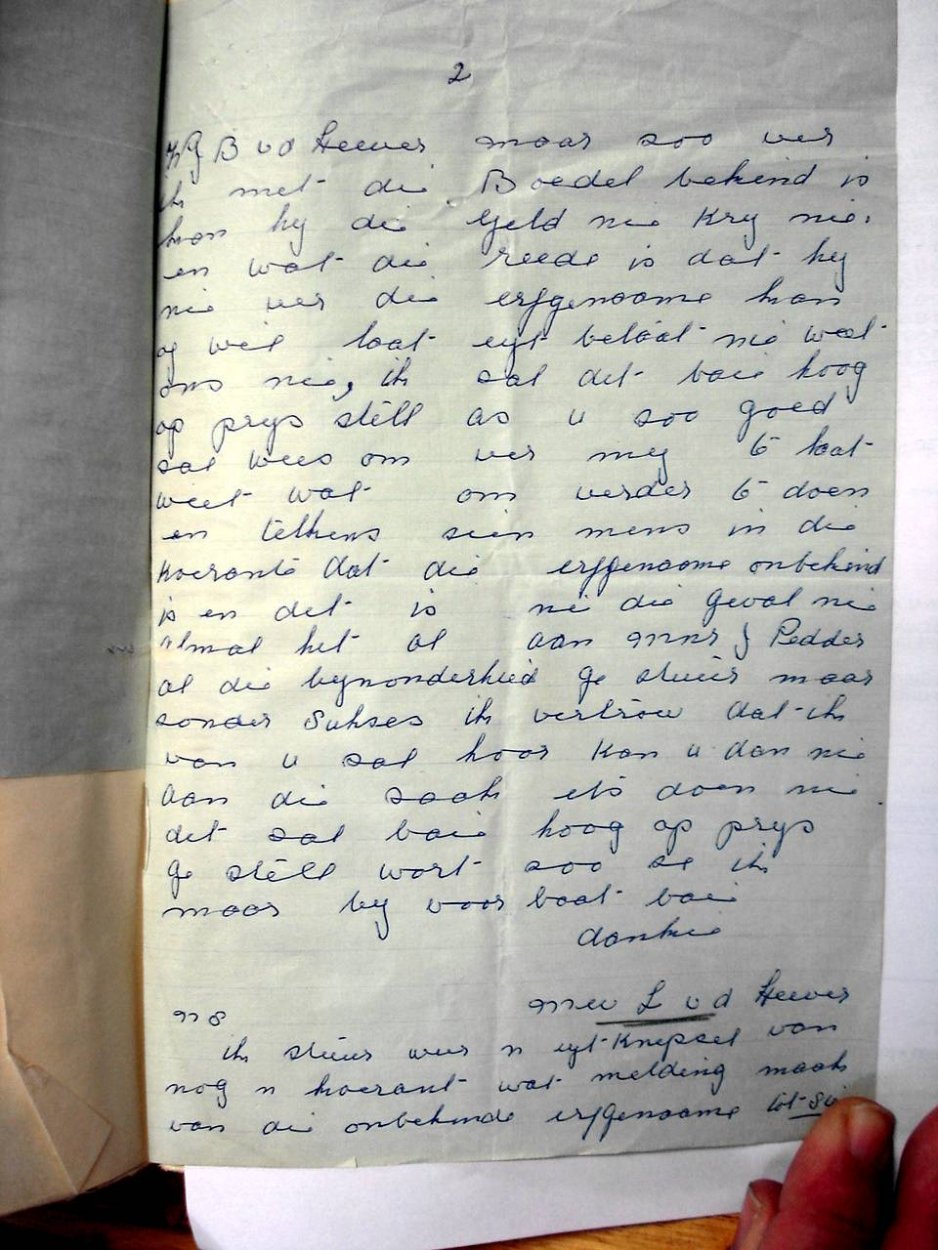 2
B v d Heever maar soo ver
ik met die Boedel bekend is
kan hy die geld nie kry nie.
en wat die reede is dat hy
nie ver die erfgenaame kan
of wil laat eyt betaal nie weet
ons nie, ik sal det baie hoog
op prys stell as u soo goed
sal wees om ver my te laat
weet wat om verder te doen
en telkens sien mens in die
koerante dat die erfgenaame onbekend
is en det is nie die geval nie
almal het al aan mnr J Pedder
al die bysonderhied ge stuur maar
sonder sukses ik vertrow dat ik
van u sal hoor kan u dan nie
aan die saak ets doen nie
det sal baie hoog op prys
ge stell wort soo se ik
maar by voor baat baie
dankie
mev L v d Heever
n s
ik stuur weer n eyt Knepsel van
nog n koerant wat melding maak
van die onbekende erfgenaame tot